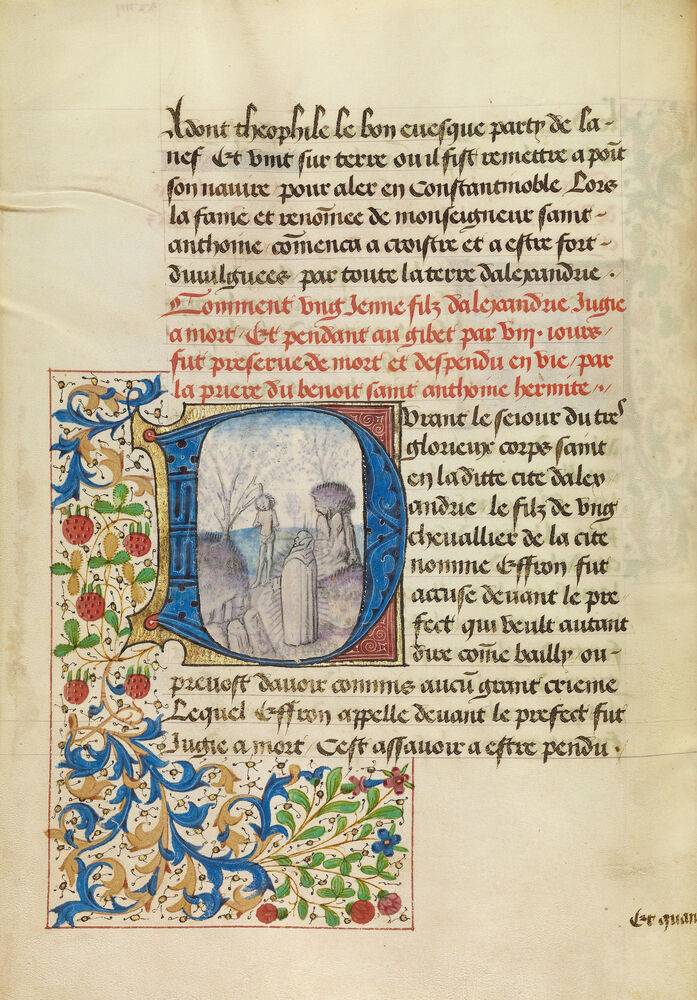 Adont theophile le bon euesque party de la-
nef Et vint sur terre ou il fist remettre a poīt
son nauire pour aler en Constantinoble Lors
la fame et renōmee de monseigneur saint-
anthoine cōmenca a croistre et a estre fort-
diuulguees par toute la terre dalexandrie .
Comment vng Jenne filz dalexandrie Jugie
a mort / Et pendant au gibet par viii . iours /
fut preserue de mort et despendu en vie / par
la priere du benoit saint anthoine hermite ./
Durant le seiour du tres
glorieux corps saint
en la ditte cite dalex
andrie le filz de vng
cheuallier de la cite
nomme Effron fut
accuse deuant le pre
fect qui veult autant
dire cōme bailly ou-
preuost dauoir commis aucū grant crieme
Lequel Effron appelle deuant le prefect fut
Jugie a mort Cest assauoir a estre pendu .
Et quan